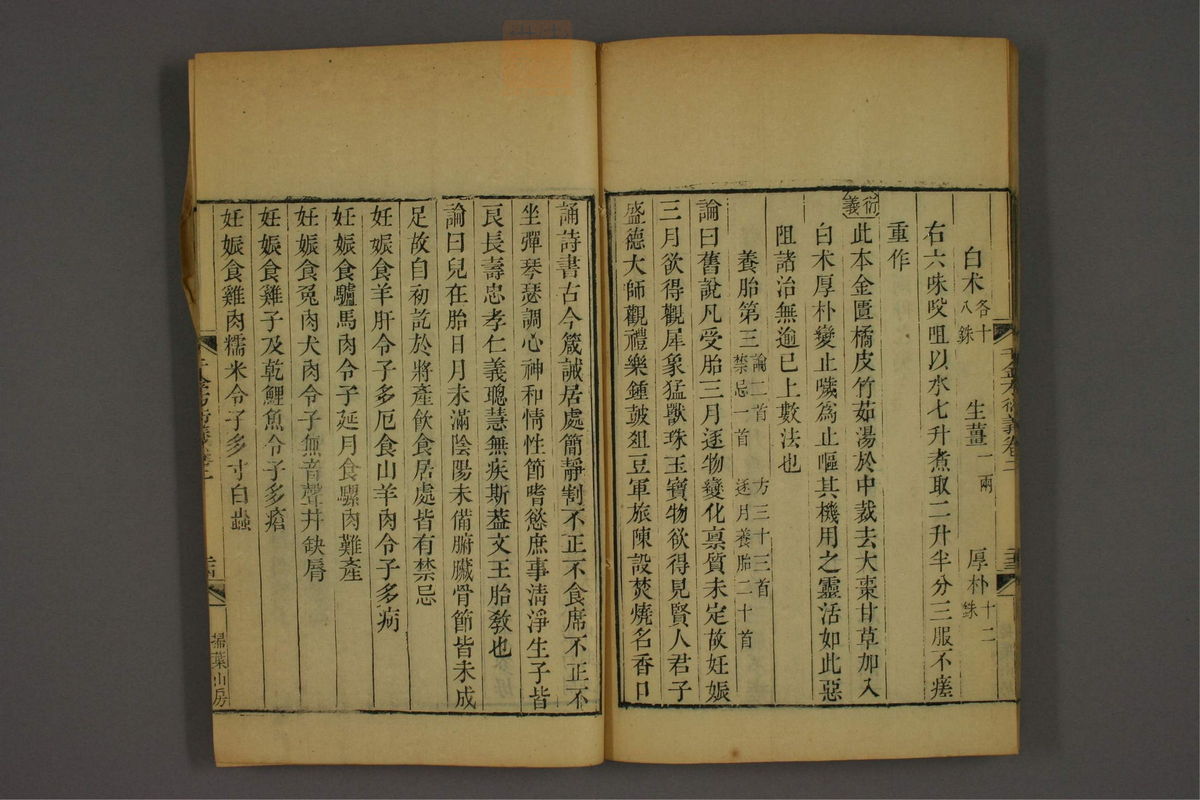 千金方衍義卷二
三十三
白术各十八銖　生薑一兩　厚朴十二銖
右六味㕮咀以水七升煮取二升半分三服不瘥
重作
衍義
此本金匱橘皮竹茹湯於中裁去大棗甘草加入
白术厚朴變止噦為止嘔其機用之靈活如此惡
阻諸治無逾已上數法也
養胎第三　論二首　禁忌一首　方三十三首　逐月養胎二十首
論曰舊說凡受胎三月逐物變化稟質未定故妊娠
三月欲得觀犀象猛獸珠玉寶物欲得見賢人君子
盛德大師觀禮樂鍾皷爼豆軍旅陳設焚燒名香口
誦詩書古今箴誡居處簡靜割不正不食席不正不
坐彈琴瑟調心神和情性節嗜慾庶事淸淨生子皆
良長壽忠孝仁義聰慧無疾斯葢文王胎敎也
論曰兒在胎日月未滿陰陽未備腑臟骨節皆未成
足故自初訖於將產飲食居處皆有禁忌
妊娠食羊肝令子多厄食山羊肉令子多病
妊娠食驢馬肉令子延月食騾肉難產
妊娠食兎肉犬肉令子無音聲幷缺脣
妊娠食雞子及乾鯉魚令子多瘡
妊娠食雞肉糯米令子多寸白蟲
千金方衍義卷二
掃葉山房